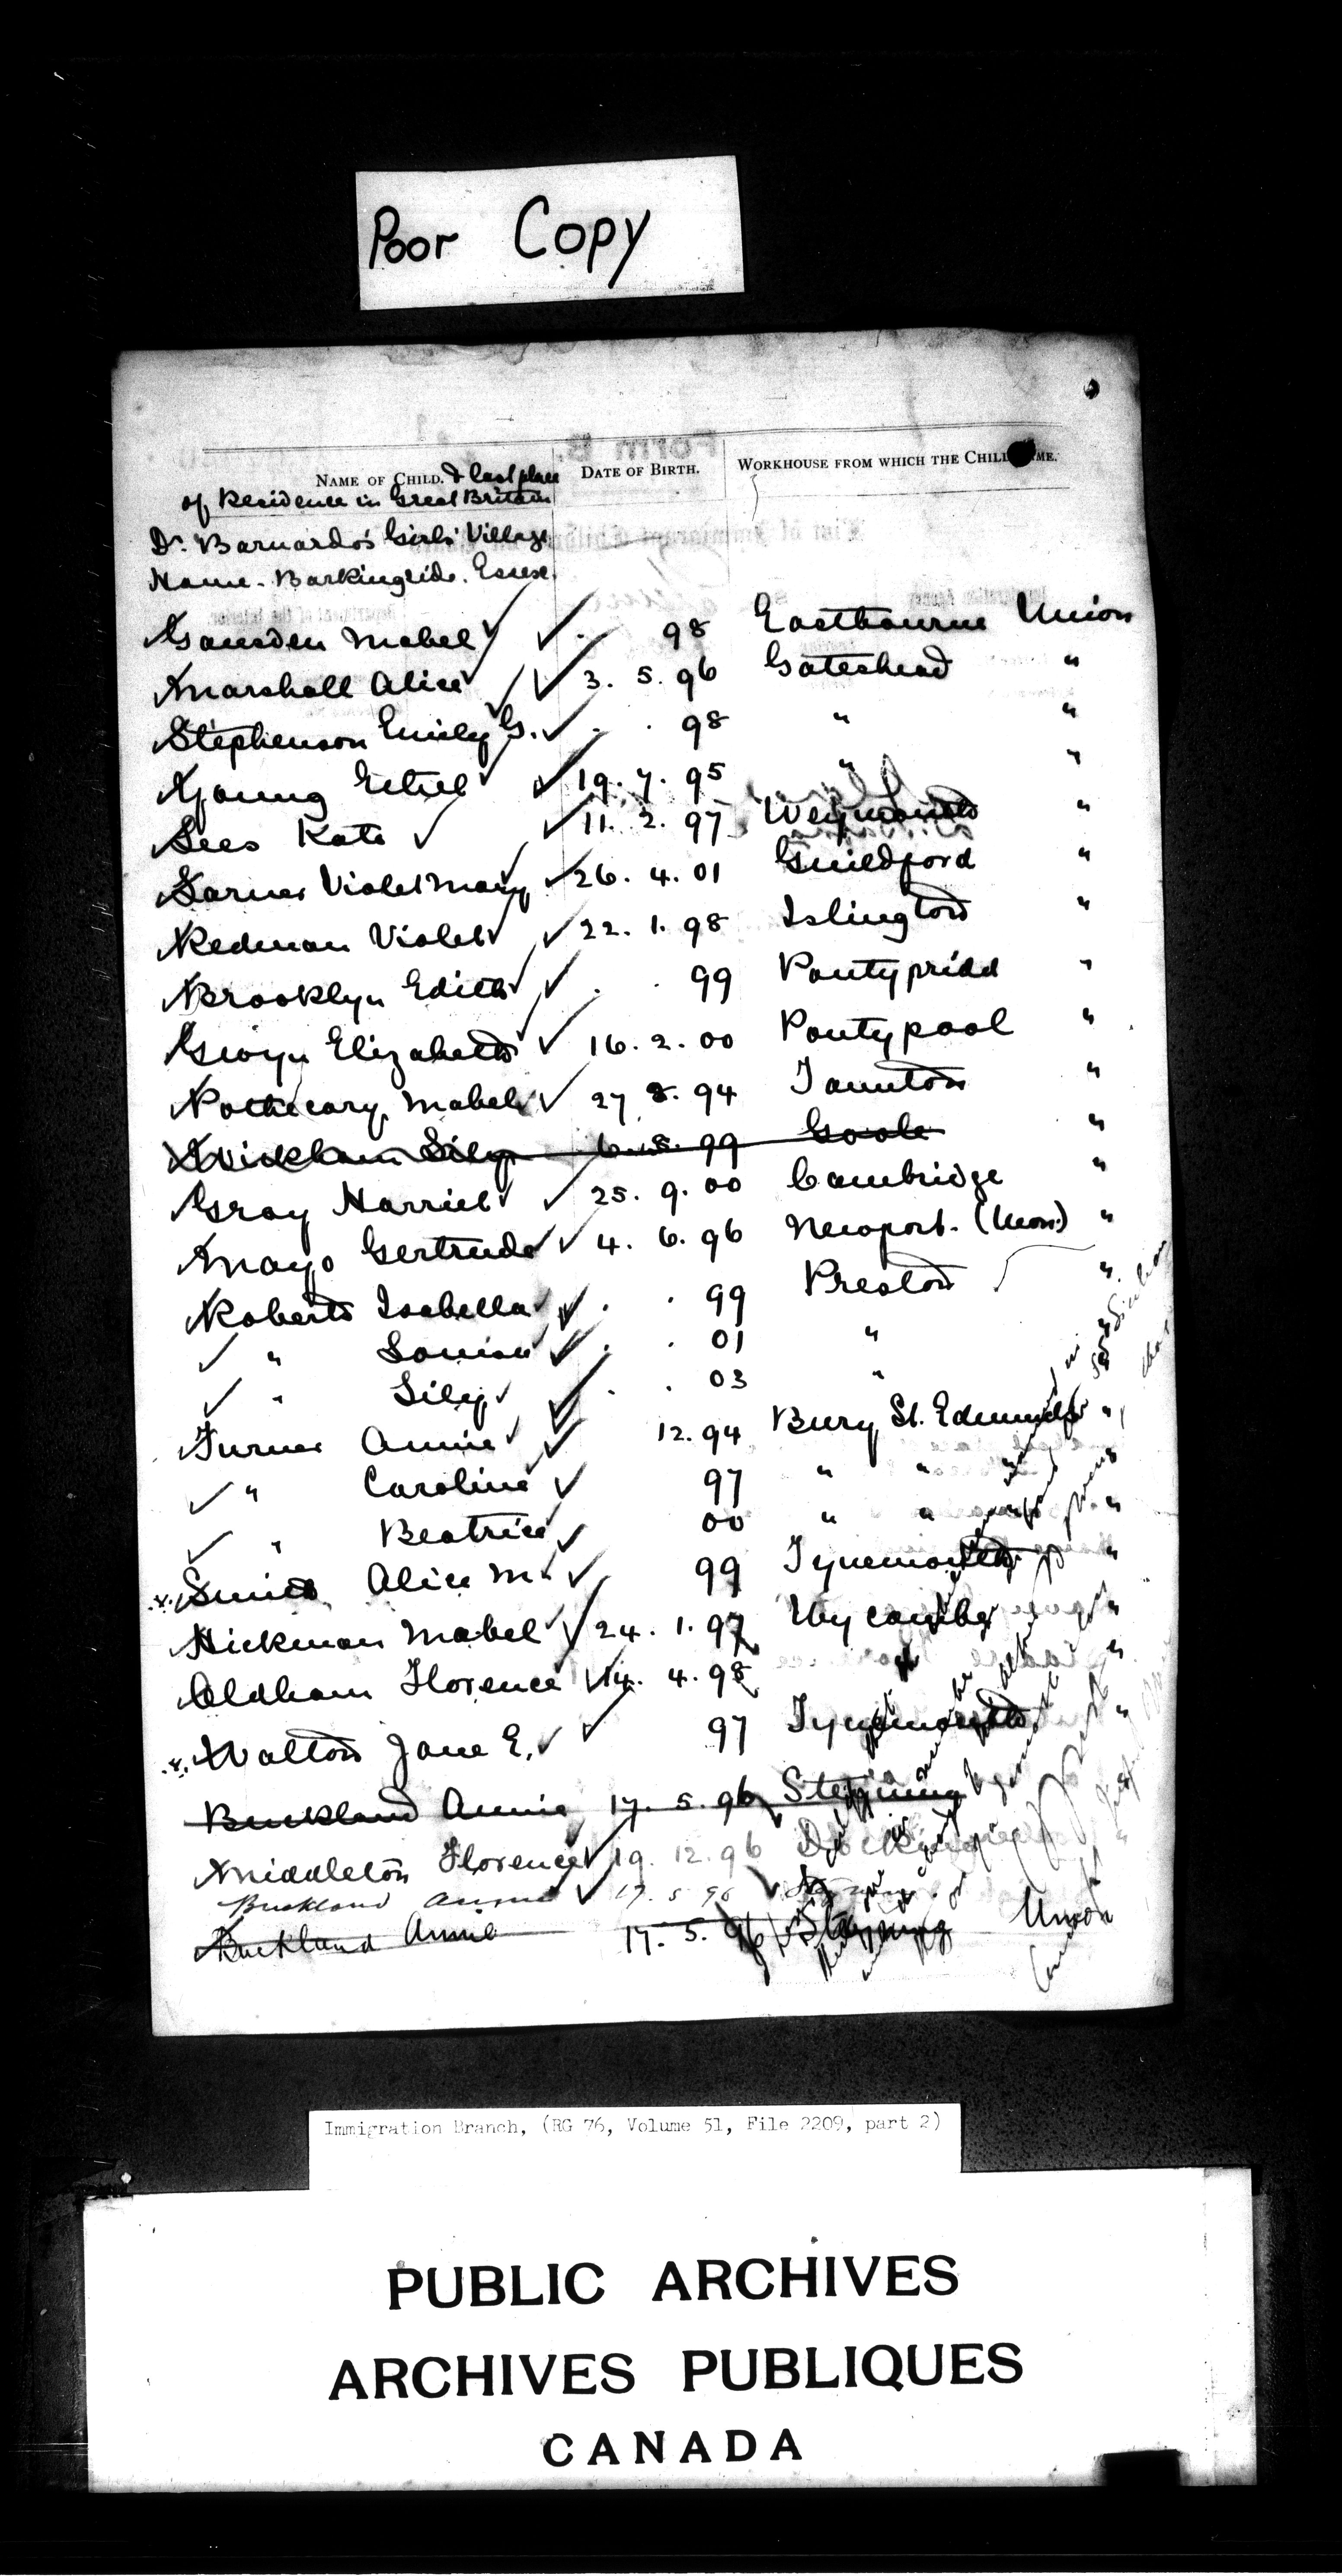 Poor Copy
NAME OF CHILD. & last place DATE OF BIRTH. WORKHOUSE FROM WHICH THE CHILD CAME.
of Residence in Great Britain
Dr. Barnardo's Girls' Village
Home. Barkingside. Essex.
Gausden Mabel 98 Eastbourne Union
Marshall Alice 3. 5. 96 Gateshead "
Stephenson Emily G. 98 " "
Young Ethel 19. 7. 95 " "
Lees Kate 11. 2. 97 Weymouth "
Larner Violet Mary 26. 4. 01 Guildford "
Redman Violet 22. 1. 98 Islington "
Brooklyn Edith 99 Pontypridd "
Gwyn Elizabeth 16. 2. 00 Pontypool "
Pothecary Mabel 27 8. 94 Taunton "
Wickham Lily 99 Goole "
Gray Harriet 25. 9. 00 Cambridge "
Mayo Gertrude 4. 6. 96 Newport. (Mon.) "
Roberts Isabella 99 Preston "
" Louisa 01 "
" Lily 03 "
Turner Annie 12. 94 Bury St. Edmunds "
" Caroline 97 " "
" Beatrice 00 " " "
Smith Alice M. 99 Tynemouth "
Hickman Mabel 24. 1. 97 Wycombe "
Oldham Florence 14. 4. 98 "
Walton Jane E. 97 Tynemouth "
Buckland Annie 17. 5. 96 Steyning
Middleton Florence 19. 12. 96 "
Buckland Annie 17. 5 96
Buckland Annie 17. 5. 96 Steyning Union
Immigration Branch, (RG 76, Volume 51, File 2209, part 2)
PUBLIC ARCHIVES
ARCHIVES PUBLIQUES
CANADA